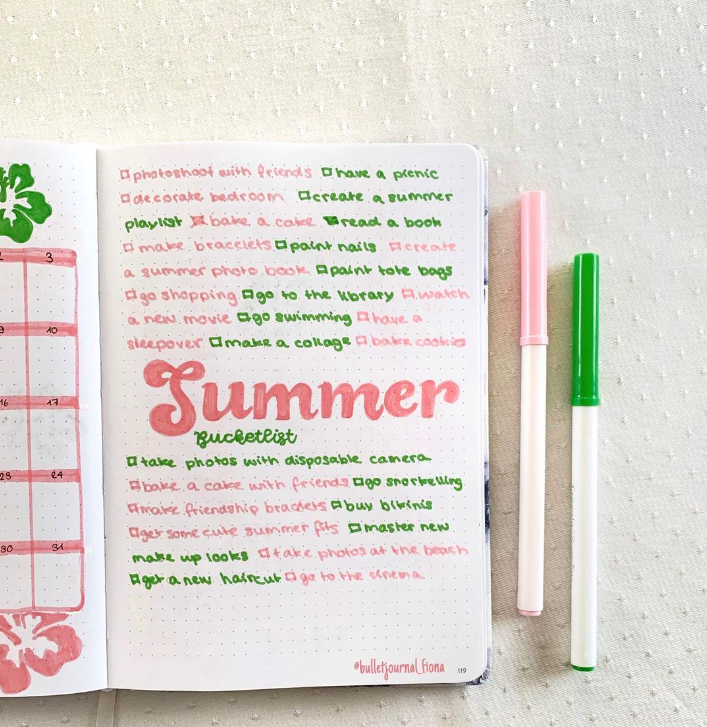 2 3
9 10
16 17
23 24
30 31
photoshoot with friends have a picnic
decorate bedroom create a summer
playlist bake a cake read a book
make bracelets paint nails create
a summer photo book paint tote bags
go shopping go to the library watch
a new movie go swimming have a
sleepover make a collage bake cookies
Summer
Bucketlist
take photos with disposable camera
bake a cake with friends go snorkelling
make friendship braclets buy bikinis
get some cute summer fits master new
make up looks take photos at the beach
get a new haircut go to the cinema
@bulletjournal_fiona 119